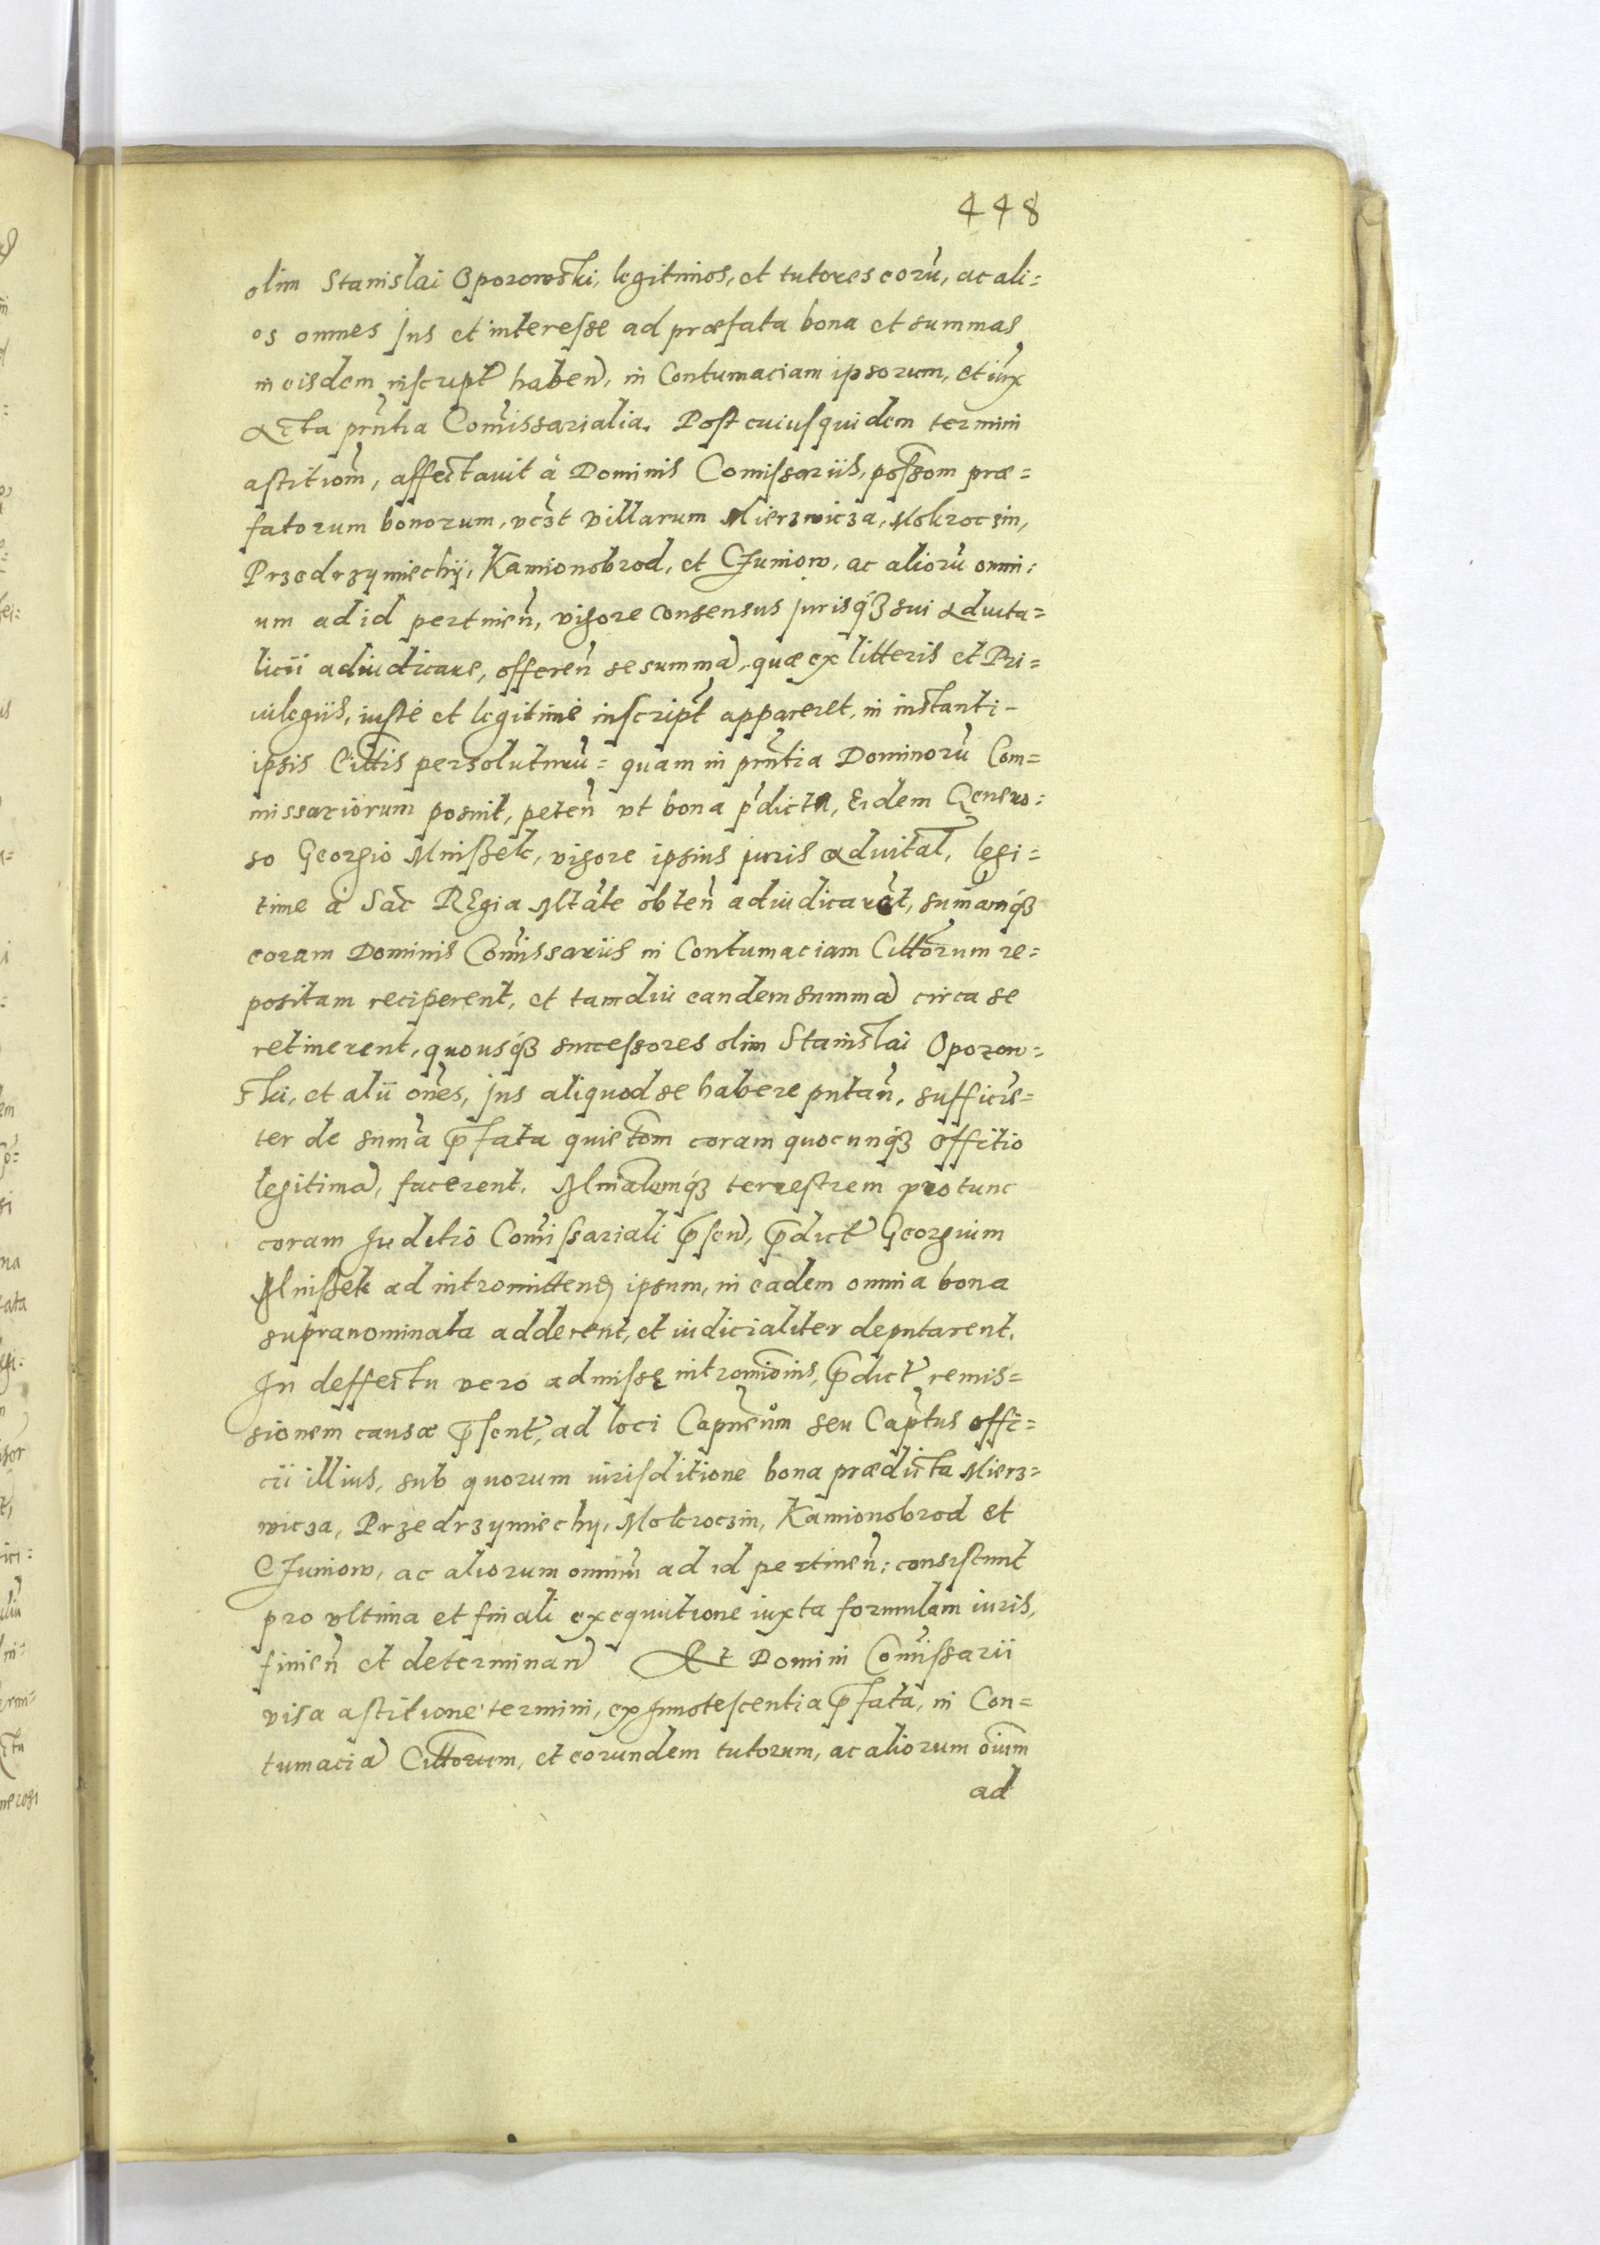 448
olim Stanislai Oporowski, legitimos, et tutores eorũ, ac ali=
os omnes Jus et interesse ad præfata bona et summas
in eisdem inscript haben, in Contumaciam ipsorum, et iux
Acta pñtia Comissarialia. Post cuiusquidem termini
astitiom, affectauit à Dominis Comissariis, possom præ=
fatorum bonorum, vczt villarum Mierzwicza, Mokroczin,
Przedrzymiechij, Kamionobrod, et Cźuniow, ac aliorũ omni=
um ad id pertineñ, vigore consensus jurisq3 sui aduita=
licii adiudicare, offereñ se summã, quæ ex litteris et Pri=
uilegiis, iustè et legitimè inscript appareret, in instanti-
ipsis Cittis persoluturũ= quam in pñtia Dominorũ Com=
missariorum posuit, peteñ vt bona pdicta, Eidem Genero=
so Georgio Mnissek, vigore ipsius juris aduital, legi=
time à Sac REgia Mtate obteñ adiudicarẽt, sumamq3
coram Dominis Comissariis in Contumaciam Cittorum re=
positam reciperent, et tamdiu eandem summã circa se
retinerent, quousq3 successores olim Stanislai Oporow=
ski, et alii oñes, jus aliquod se habere putañ, sufficiẽ=
ter de suma pfata quietom coram quocunq3 Offitio
legitimã, facerent. Mnalemq3 terrestrem pro tunc
coram Juditio Comissariali psen, pdict Georgium
Mnissek ad intromitteng ipsum, in eadem omnia bona
supranominata adderent, et iudicialiter deputarent.
In deffectu vero admissę intromionis, pdict remis=
sionem causæ psent, ad loci Capneum seu Captus offi=
cii illius, sub quorum iurisditione bona prædicta Mierz=
wicza, Przedrzymiechy, Mokroczin, Kamionobrod et
Cźuniow, ac aliorum omniũ ad id pertineñ: consistunt
pro vltima et finali exequutione iuxta formulam iuris,
finieñ et determinan Et Domini Comissarii
visa astitione termini, ex Innotescentia pfata, in Con=
tumaciã Cittorum, et eorundem tutorum, ac aliorum oium
ad